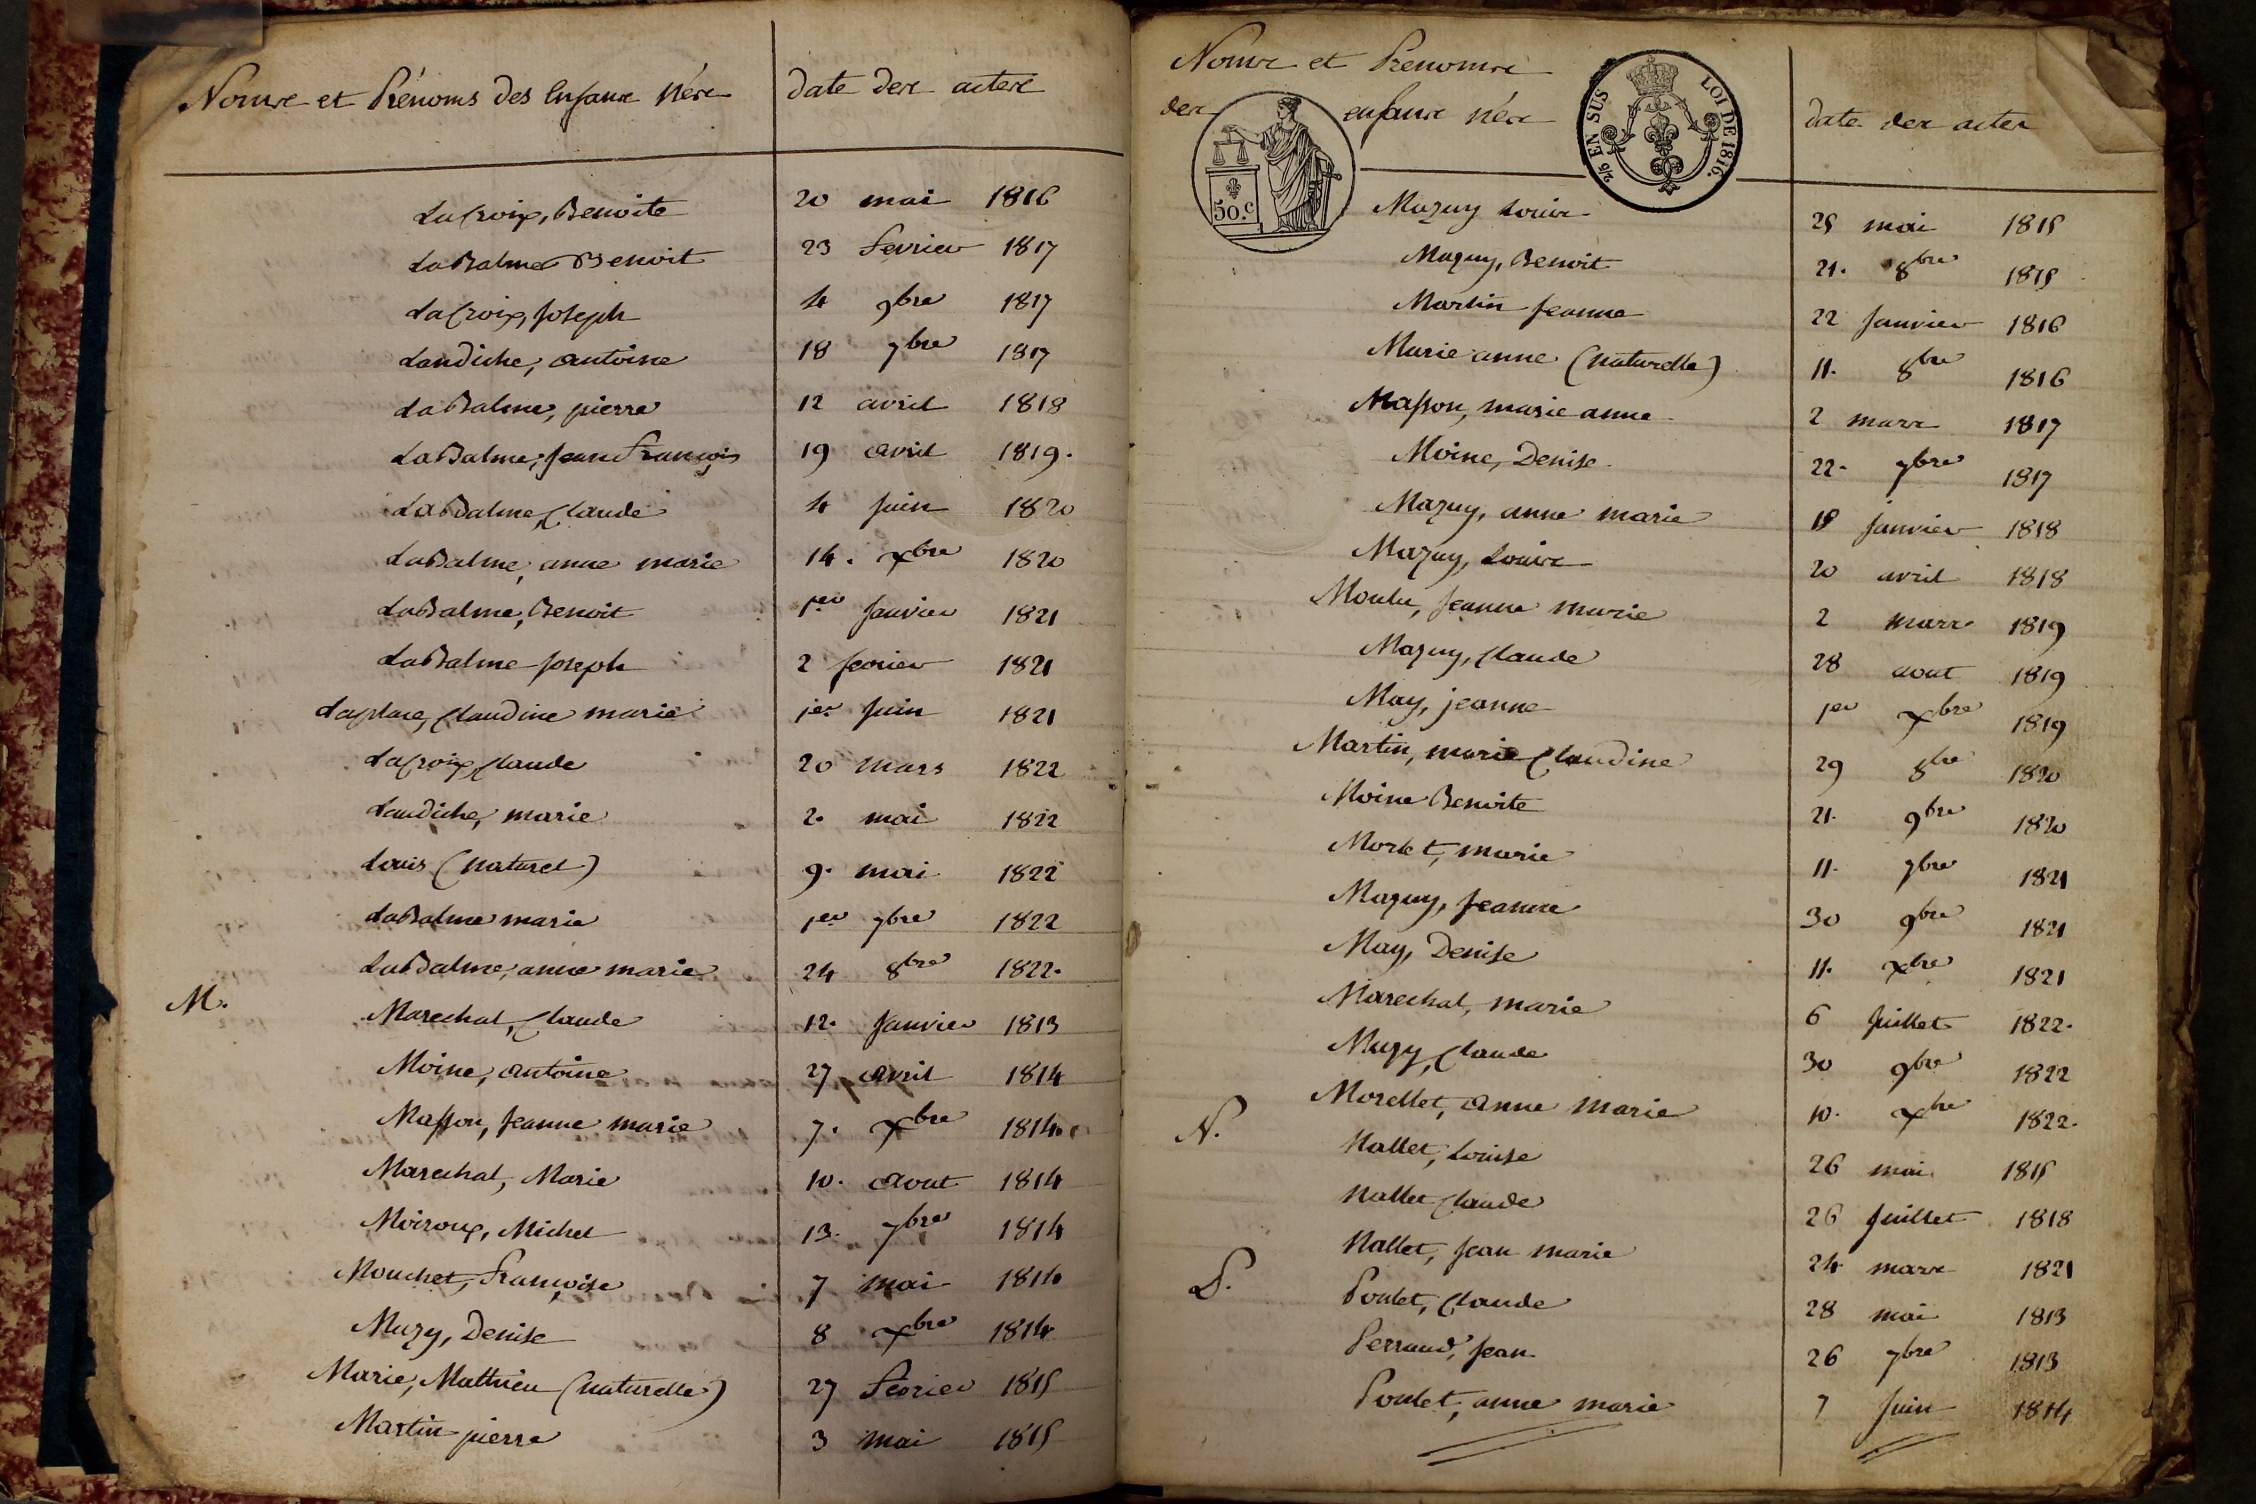 Noms et Prénoms des Enfans Nés date des actes
LaCroix, Benoite 20 mai 1816
LaBalme Benoit 23 fevrier 1817
LaCroix, Joseph 4 9bre 1817
Landiche, antoine 18 7bre 1817
LaBalme, pierre 12 avril 1818
LaBalme, Jean François 19 avril 1819.
LaBalme, Claude 4 Juin 1820
LaBalme, anne marie 14. xbre 1820
LaBalme, Benoit 1er Janvier 1821
LaBalme Joseph 2 fevrier 1821
Laplace, Claudine marie 1er Juin 1821
LaCroix, Claude 20 mars 1822
Landiche, marie 2. mai 1822
Louis (naturel) 9. mai 1822
LaBalme marie 1er 7bre 1822
LaBalme, anne marie 24 8bre 1822.
M.
Marechal, Claude 12. Janvier 1813
Moine, antoine 27 avril 1814
Masson, Jeanne marie 7. xbre 1814
Marechal, Marie 10. aout 1814
Moiroux, Michel 13. 7bre 1814
Mouchet, Françoise 7 mai 1814
Muzy, Denise 8 xbre 1814
Marie, Mathieu (naturelle) 27 fevrier 1815
Martin pierre 3 mai 1815
Noms et Prenoms
des enfans nés date des actes
50.c
2/5 EN SUS LOI DE 1816.
Mazuy Louis 25 mai 1815
Mazuy, Benoit 21. 8bre 1815
Martin Jeanne 22 Janvier 1816
Marie anne (naturelle) 11. 8bre 1816
Masson, marie anne 2 mars 1817
Moine, Denise 22. 7bre 1817
Mazuy, anne marie Janvier 1818
Mazuy, Louis 20 avril 1818
Moulu, Jeanne marie 2 mars 1819
Mazuy, Claude 28 aout 1819
May, jeanne 1er xbre 1819
Martin, marie Claudine 29 8bre 1820
Moine Benoite 21. 9bre 1820
Morlet, marie 11. 7bre 1821
Mazuy, Jeanne 30 9bre 1821
May, Denise 11. xbre 1821
Marechal, marie 6 Juillet 1822.
Muzy, Claude 30 9bre 1822
Morellet, anne marie 10. xbre 1822.
N.
Nallet, Louise 26 mai 1815
Nallet Claude 26 Juillet 1818
Nallet, Jean marie 24 mars 1821
P.
Poulet, Claude 28 mai 1813
Perraud, Jean 26 7bre 1813
Poulet, anne marie 7 Juin 1814